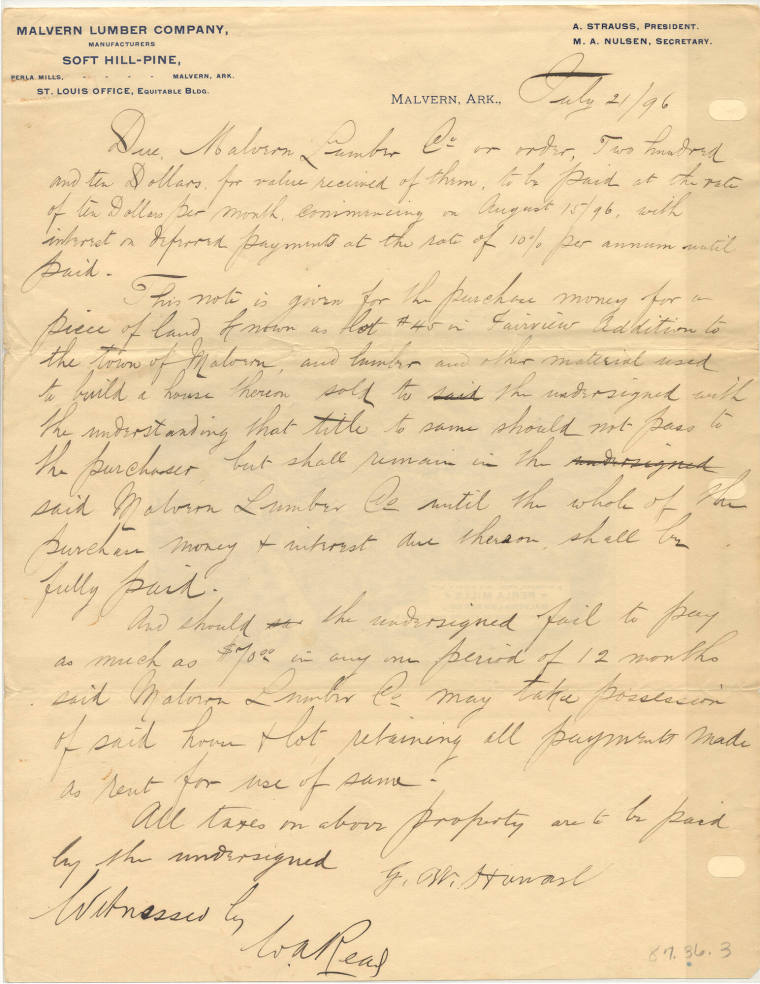 MALVERN LUMBER COMPANY,
MANUFACTURERS
SOFT HILL-PINE,
PERLA MILLS, - - - - MALVERN, ARK.
ST. LOUIS OFFICE, EQUITABLE BLDG.
A. STRAUSS, PRESIDENT.
M. A. NULSEN, SECRETARY.
MALVERN, ARK., July 21/96
Due, Malvern Lumber Co or order, Two hundred
and ten Dollars, for value received of them, to be paid at the rate
of ten Dollars per month, commencing on August 15/96, with
interest on deferred payments at the rate of 10% per annum until
paid.
This note is given for the purchase money for a
piece of land known as lot #45 in Fairview Addition to
the town of Malvern, and lumber and other material used
to build a house thereon sold to said the undersigned with
the understanding that title to same should not pass to
the purchaser but shall remain in the undersigned
said Malvern Lumber Co until the whole of the
purchase money & interest due thereon, shall be
fully paid.
And should the undersigned fail to pay
as much as $70.00 in any one period of 12 months
said Malvern Lumber Co may take possession
of said house & lot, retaining all payments made
as rent for use of same.
All taxes on above property are to be paid
by the undersigned
G. W. Howard
Witnessed by
W. A. Read
87.36.3